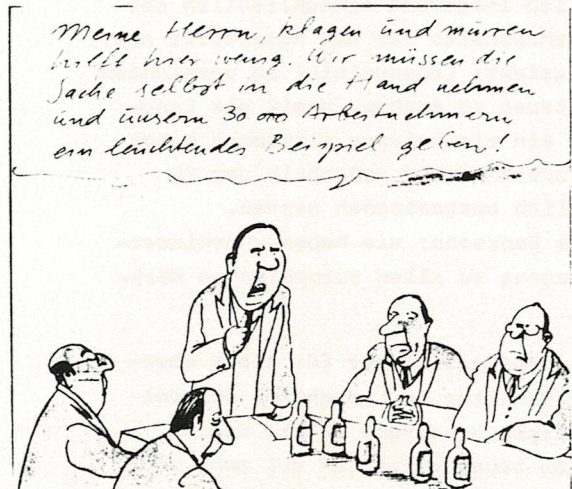 Meine Herrn, klagen und murren
hilft hier wenig. Wir müssen die
Sache selbst in die Hand nehmen
und unsern 30 000 Arbeitnehmern
ein leuchtendes Beispiel geben!